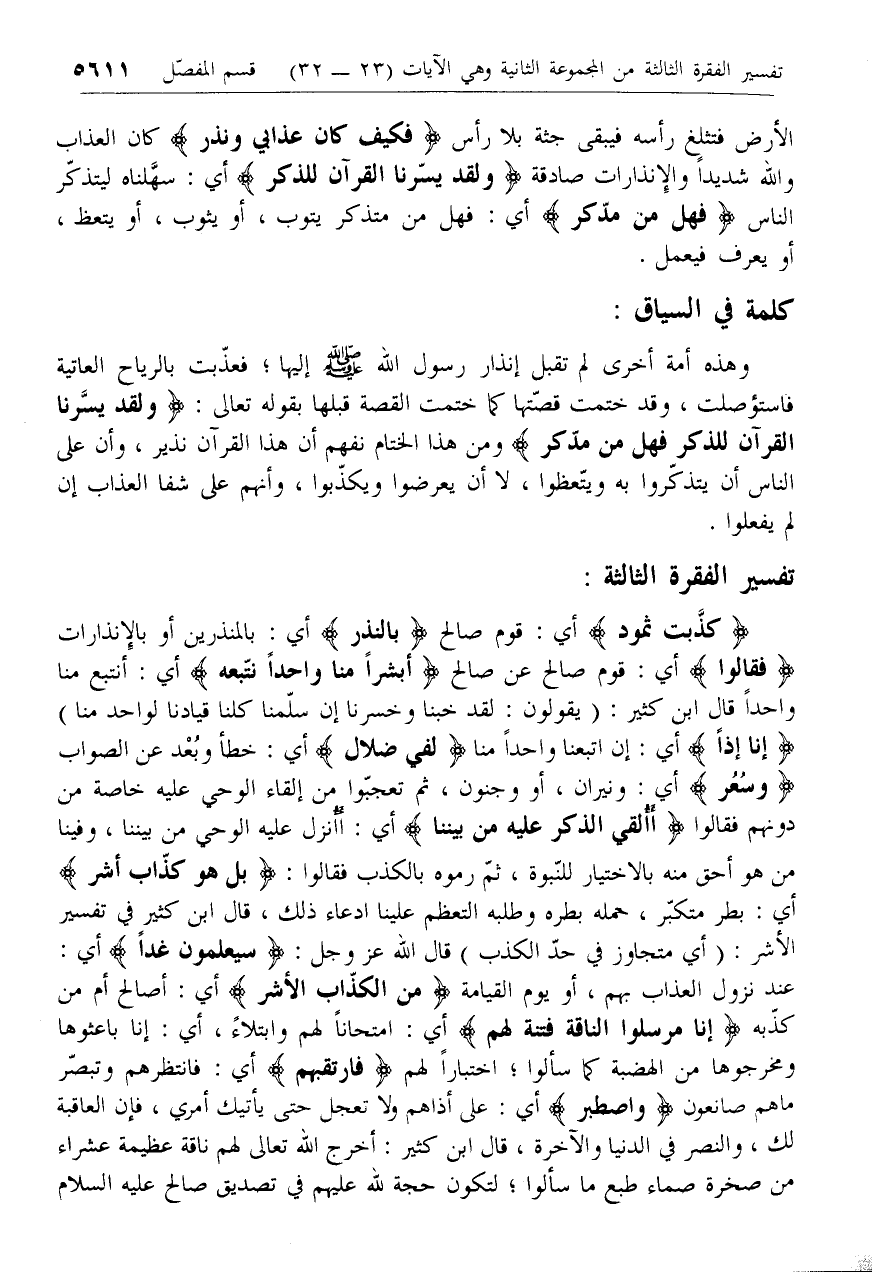 تفسير الفقرة الثالثة من المجموعة الثانية وهي الآيات (٢٣ ــ ٣٢) قسم المفصّل ٥٦١١
الأرض فتثلغ رأسه فيبقى جثة بلا رأس ﴿ فكيف كان عذابي ونذر ﴾ كان العذاب
والله شديداً والإنذارات صادقة ﴿ ولقد يسّرنا القرآن للذكر ﴾ أي : سهَّلناه ليتذكّر
الناس ﴿ فهل من مدّكر ﴾ أي : فهل من متذكر يتوب ، أو يثوب ، أو يتعظ ،
أو يعرف فيعمل .
كلمة في السياق :
وهذه أمة أخرى لم تقبل إنذار رسول الله ﷺ إليها ؛ فعذّبت بالرياح العاتية
فاستؤصلت ، وقد ختمت قصّتها كما ختمت القصة قبلها بقوله تعالى : ﴿ ولقد يسَّرنا
القرآن للذكر فهل من مدّكر ﴾ ومن هذا الختام نفهم أن هذا القرآن نذير ، وأن على
الناس أن يتذكّروا به ويتّعظوا ، لا أن يعرضوا ويكذّبوا ، وأنهم على شفا العذاب إن
لم يفعلوا .
تفسير الفقرة الثالثة :
﴿ كذَّبت ثمود ﴾ أي : قوم صالح ﴿ بالنذر ﴾ أي : بالمنذرين أو بالإنذارات
﴿ فقالوا ﴾ أي : قوم صالح عن صالح ﴿ أبشراً منا واحداً نتّبعه ﴾ أي : أنتبع منا
واحداً قال ابن كثير : ( يقولون : لقد خبنا وخسرنا إن سلّمنا كلنا قيادنا لواحد منا )
﴿ إنا إذاً ﴾ أي : إن اتبعنا واحداً منا ﴿ لفي ضلال ﴾ أي : خطأ وبُعْد عن الصواب
﴿ وسُعُر ﴾ أي : ونيران ، أو وجنون ، ثم تعجبّوا من إلقاء الوحي عليه خاصة من
دونهم فقالوا ﴿ أأُلقي الذكر عليه من بيننا ﴾ أي : أأُنزل عليه الوحي من بيننا ، وفينا
من هو أحق منه بالاختيار للنّبوة ، ثمّ رموه بالكذب فقالوا : ﴿ بل هو كذّاب أشر ﴾
أي : بطر متكبّر ، حمله بطره وطلبه التعظم علينا ادعاء ذلك ، قال ابن كثير في تفسير
الأشر : ( أي متجاوز في حدّ الكذب ) قال الله عز وجل : ﴿ سيعلمون غداً ﴾ أي :
عند نزول العذاب بهم ، أو يوم القيامة ﴿ من الكذّاب الأشر ﴾ أي : أصالح أم من
كذّبه ﴿ إنا مرسلوا الناقة فتنة لهم ﴾ أي : امتحاناً لهم وابتلاءً ، أي : إنا باعثوها
ومخرجوها من الهضبة كما سألوا ؛ اختباراً لهم ﴿ فارتقبهم ﴾ أي : فانتظرهم وتبصّر
ماهم صانعون ﴿ واصطبر ﴾ أي : على أذاهم ولا تعجل حتى يأتيك أمري ، فإن العاقبة
لك ، والنصر في الدنيا والآخرة ، قال ابن كثير : أخرج الله تعالى لهم ناقة عظيمة عشراء
من صخرة صماء طبع ما سألوا ؛ لتكون حجة لله عليهم في تصديق صالح عليه السلام